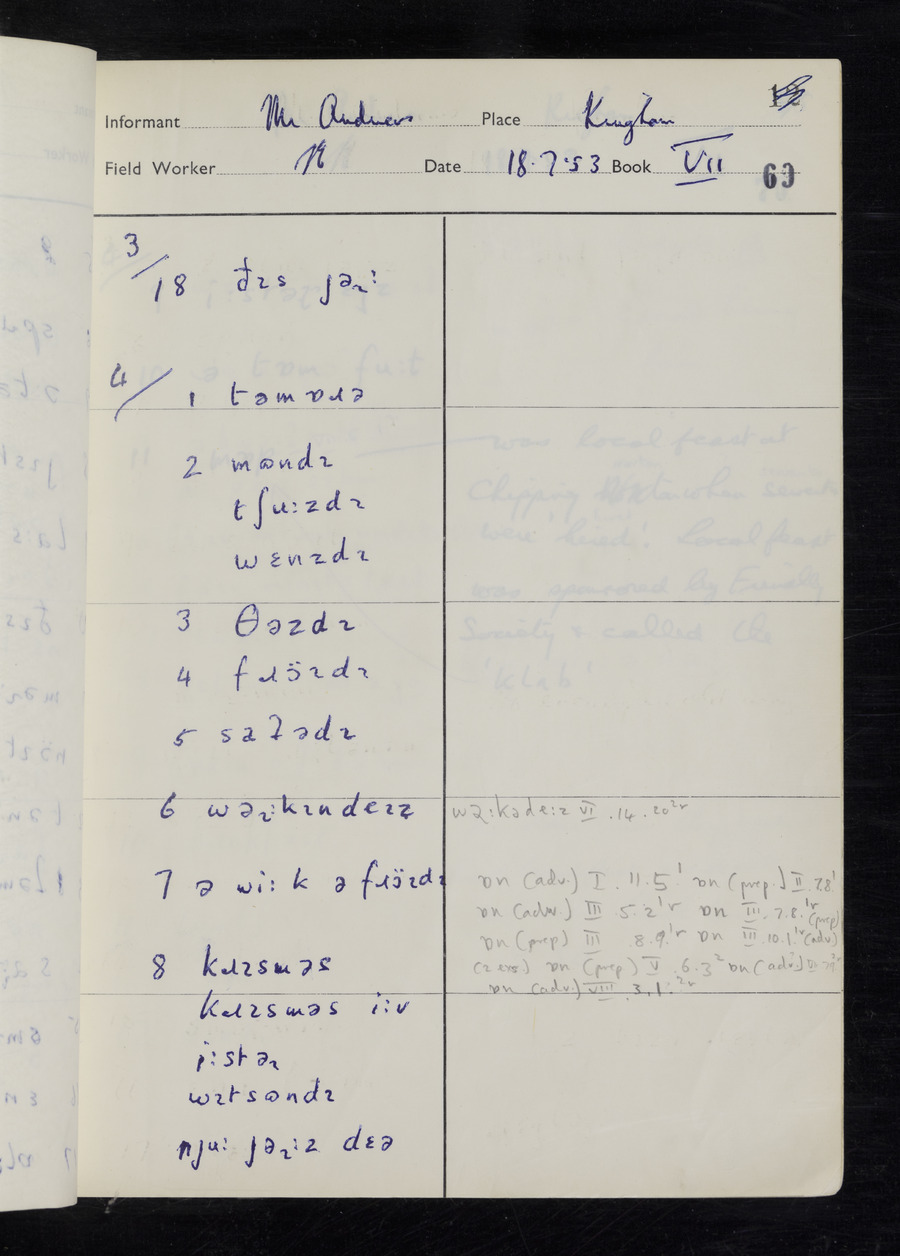 Informant Mr Andrews Place Kingham
Field Worker Date 18.7.53 Book VII 60
3/18 ðɪs jəɻː
4/1 təmɒɹə
2 mɒndɪ
tʃuːzdɪ
wɛnzdɪ
3 θəzdɪ
4 fɹöɪdɪ
5 saʔədɪ
6 wəɻːkɪndeɪz̥ wəːkədeːz VI .14. 20²ʳ
7 ə wiːk ə fɹöɪdɪ ɒn (adv.) I . 11.5¹ ɒn (prep.) II .28¹
ɒn (adv.) III 5.2¹ʳ ɒn III .7.8.¹ʳ (prep)
ɒn (prep) III 8.9.¹ʳ ɒn III .10.1.¹ʳ (adv)
8 kɹɪsməs
ɒn (prep) V .6.3² ɒn (adv.)
ɒn (adv.) VIII 3,1.²ʳ
kɹɪsməs iːv
iːstəɻ
wɪtsɒndɪ
njuː jəɻːz dɛə